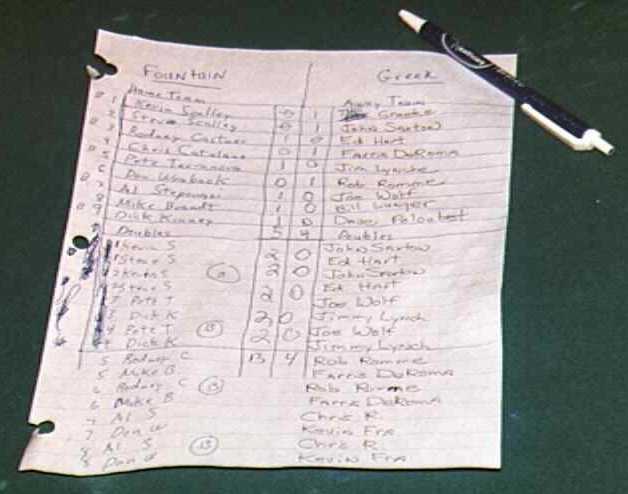 Fountain Greek
Home Team Away Team
1 Kevin Scalley 0 1 Greeke
2 Steve Scalley 0 1 John Sexton
3 Rodney 1 0 Ed Hart
4 Chris Catalano 0 1 Farris DaRoma
5 Pete 1 0 Jim Lynch
6 Don 0 1 Rob Romme
7 Al 1 0 Joe Wolf
8 Mike Brandt 1 0 Bill
9 Dick Kinney 0 Dave
Doubles 5 4 Doubles
1 Kevin S 2 0 John Sexton
1 Steve S Ed Hart
2 Kevin S 2 0 John Sexton
2 Steve S Ed Hart
3 Pete T 2 0 Joe Wolf
3 Dick K Jimmy Lynch
4 Pete T 13 2 0 Joe Wolf
4 Dick K Jimmy Lynch
5 Rodney C 13 4 Rob Romme
5 Mike B Farris DaRoma
6 Rodney C 13 Rob Romme
6 Mike B Farris DaRoma
7 Al S Chris R.
7 Don W Kevin Fra
8 Al S 13 Chris R.
8 Don W Kevin Fra